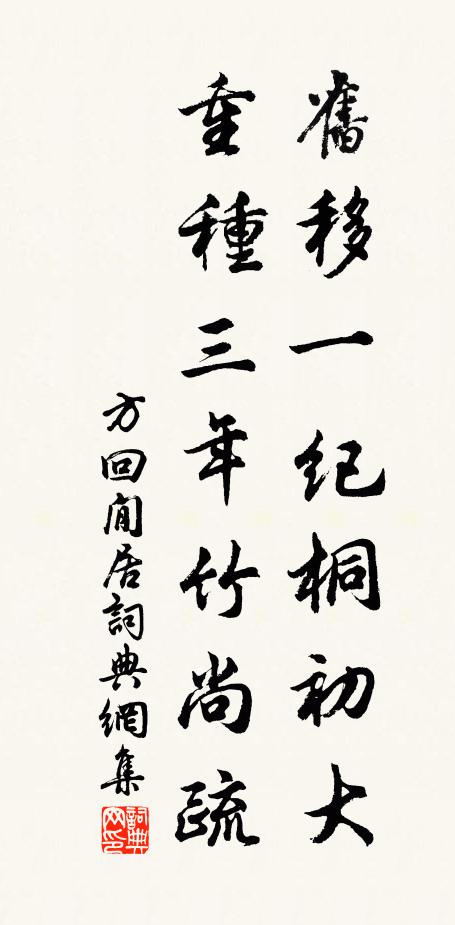 舊移一紀桐初大
重種三年竹尚疏
方回閒居詞典網集
詞典網印